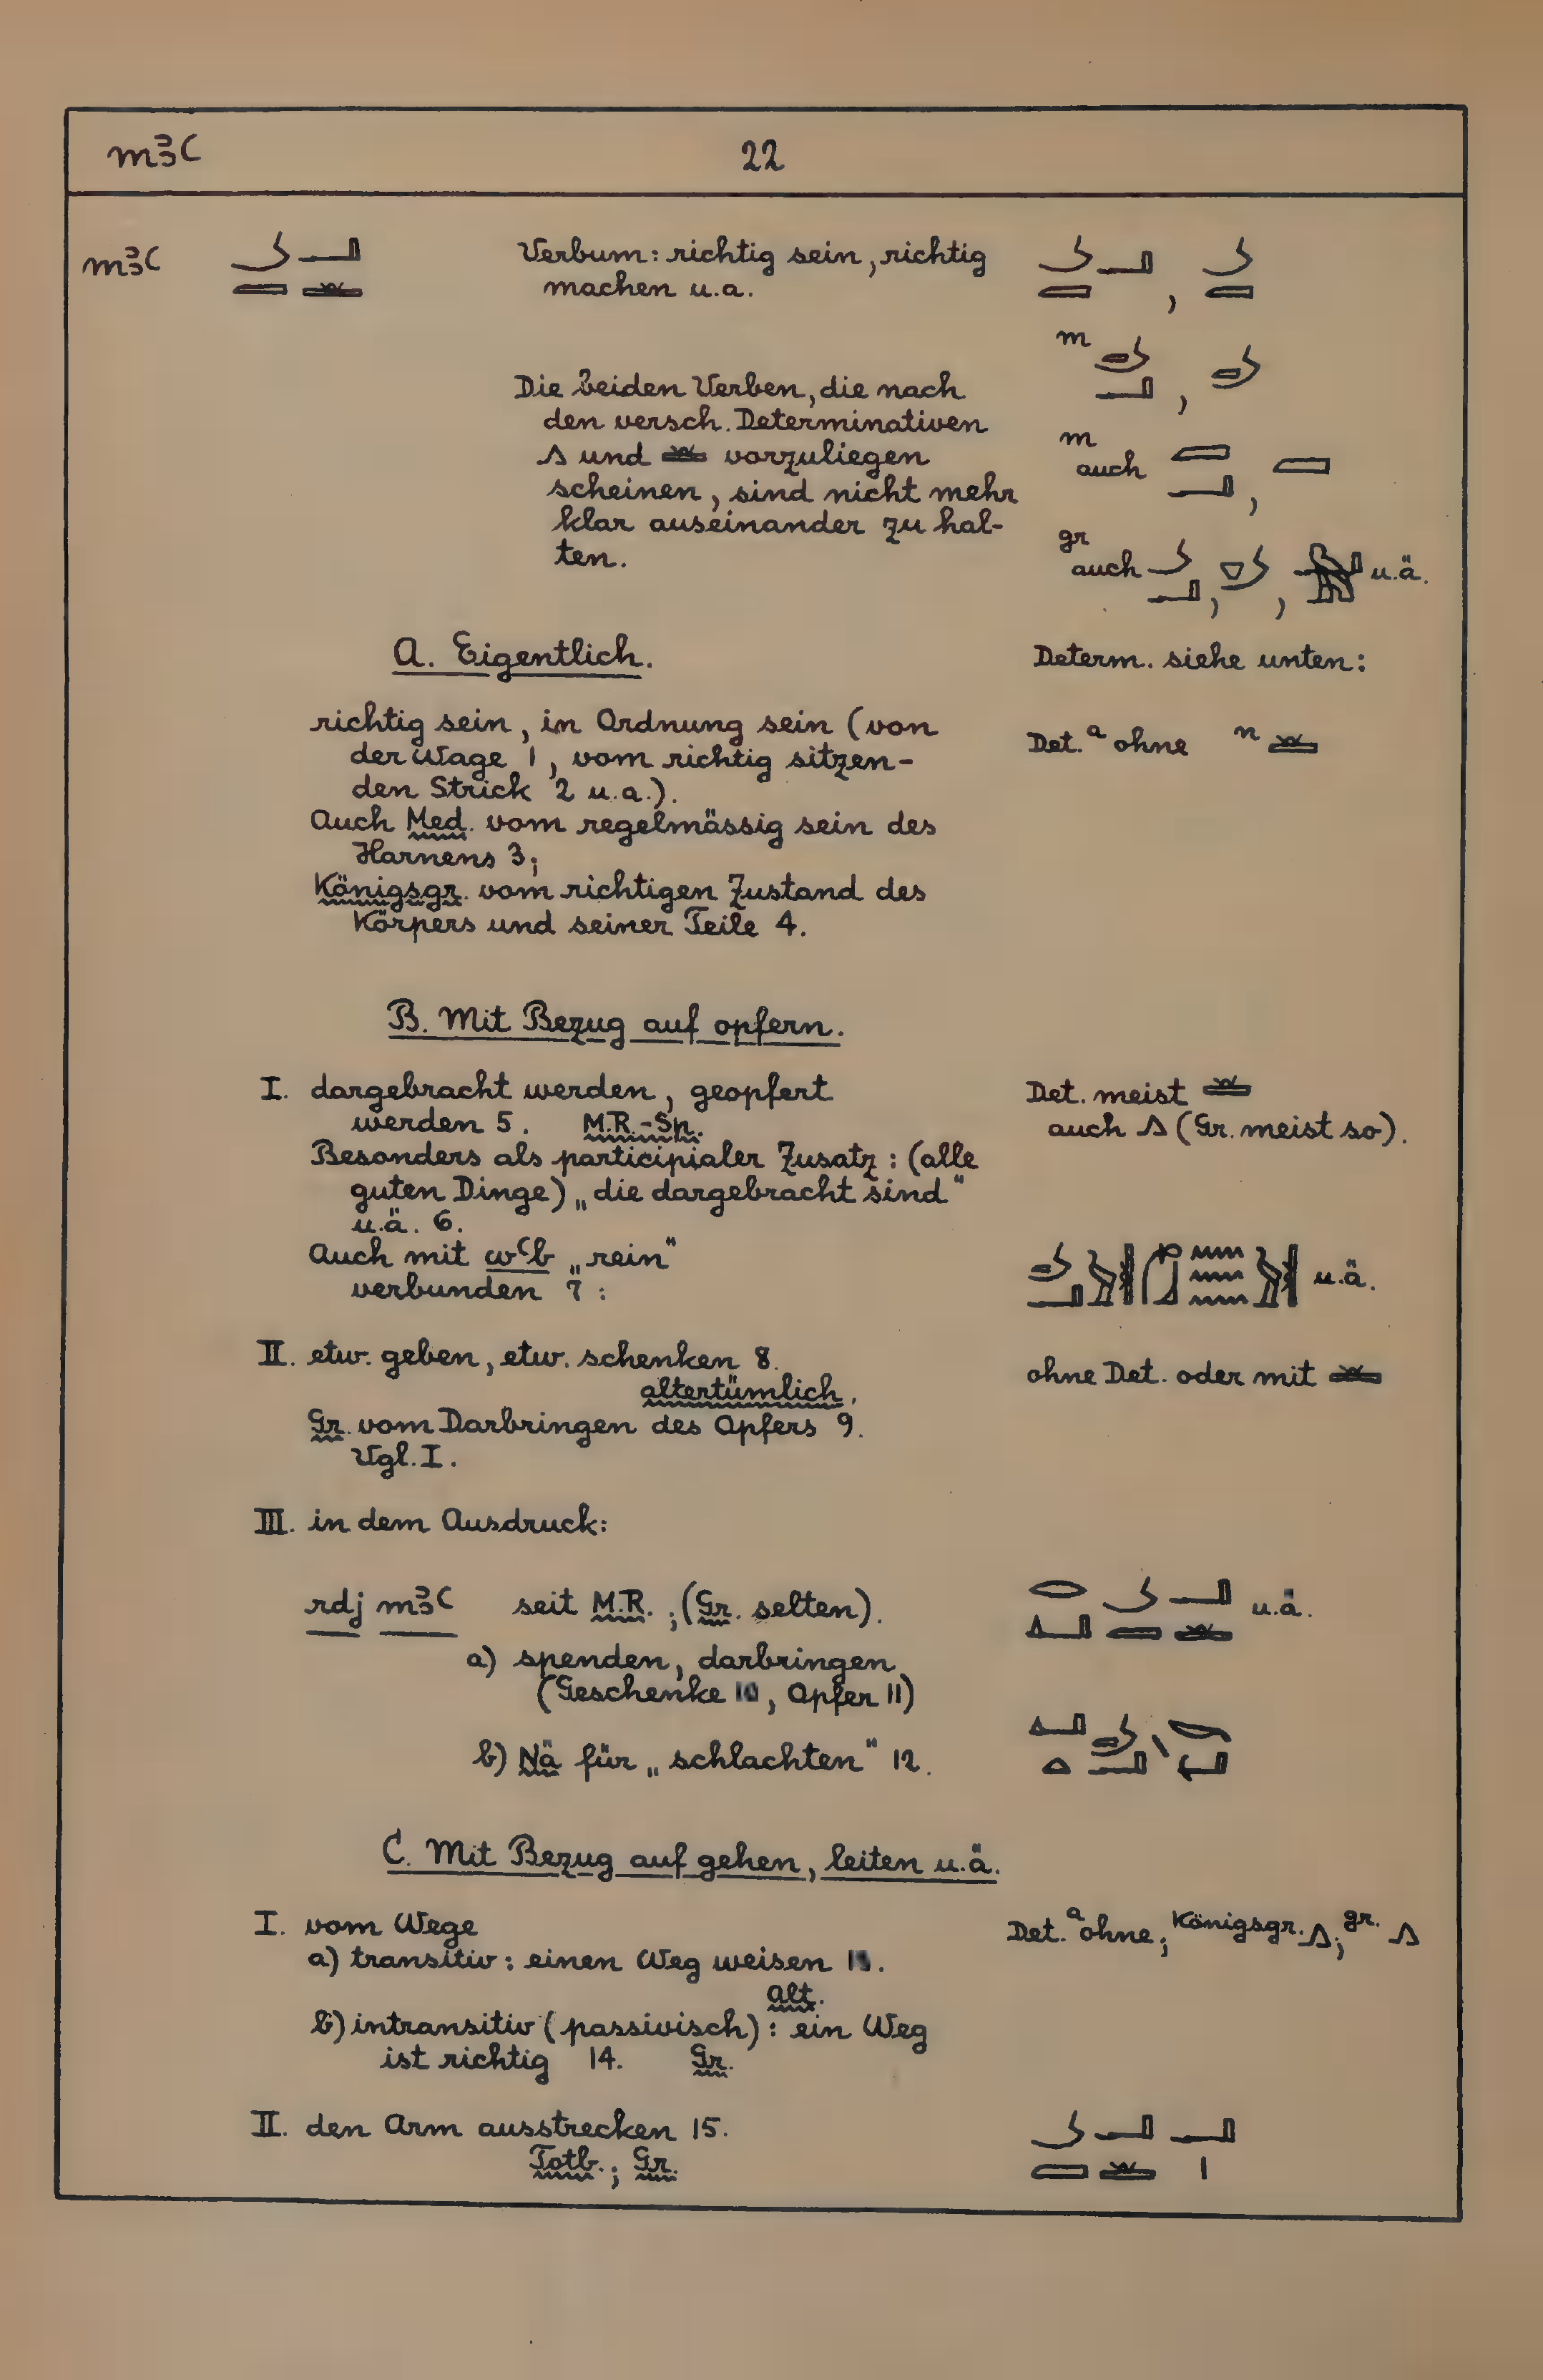 mꜣꜥ 22
mꜣꜥ Verbum: richtig sein, richtig
machen u.a.
m
Die beiden Verben, die nach
den versch. Determinativen
𓂻 und 𓏛 vorzuliegen
scheinen, sind nicht mehr
klar auseinander zu hal-
ten.
m
auch
gr
auch u.ä.
A. Eigentlich.
Determ. siehe unten:
richtig sein, in Ordnung sein (von
der Wage 1, vom richtig sitzen-
den Strick 2 u.a.).
Det. a ohne n 𓏛
Auch Med. vom regelmässig sein des
Harnens 3;
Königsgr. vom richtigen Zustand des
Körpers und seiner Teile 4.
B. Mit Bezug auf opfern.
I. dargebracht werden, geopfert
werden 5. M.R.-Sp.
Det. meist 𓏛
auch 𓂻 (Gr. meist so).
Besonders als participialer Zusatz: (alle
guten Dinge) „die dargebracht sind“
u.ä. 6.
Auch mit wꜥb „rein“
verbunden 7:
u.ä.
II. etw. geben, etw. schenken 8.
altertümlich.
ohne Det. oder mit 𓏛
Gr. vom Darbringen des Opfers 9.
Vgl. I.
III. in dem Ausdruck:
rdj mꜣꜥ seit M.R.; (Gr. selten). u.ä.
a) spenden, darbringen
(Geschenke 10, Opfer 11)
b) Nä für „schlachten“ 12.
C. Mit Bezug auf gehen, leiten u.ä.
I. vom Wege
Det. a ohne; Königsgr. 𓂻; gr. 𓂻
a) transitiv: einen Weg weisen 13.
Alt.
b) intransitiv (passivisch): ein Weg
ist richtig 14. Gr.
II. den Arm ausstrecken 15.
Totb.; Gr.